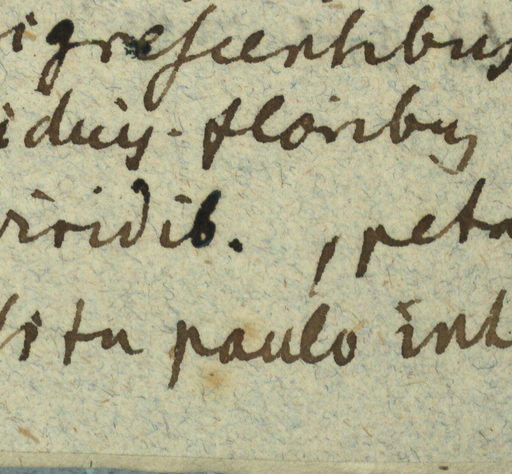 igrescentibus
iduis. floribus
viridib. , peta
situ paulo int